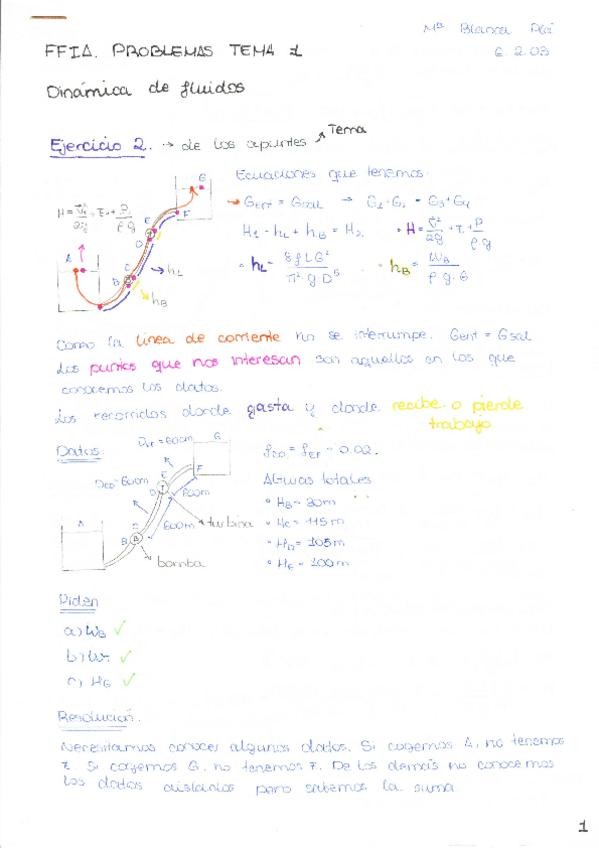 Mª Blanca Plá
6.2.03
FFIA. PROBLEMAS TEMA 1
Dinámica de fluidos
Ejercicio 2. → de los apuntes Tema
Ecuaciones que tenemos.
→ Gent = Gsal → G1+G2 = G3+G4
H1 - hL + hB = H2
H = v²/2g + z + P/ρ·g
hL = 8fLG²/π²·g D⁵
hB = WB/ρ·g·G
H = v²/2g + z + P/ρ·g
A B C D E F G
→ hL
hB
Como la línea de corriente no se interrumpe. Gent = Gsal
Los puntos que nos interesan son aquellos en los que
conocemos los datos.
Los recorridos donde gasta y donde recibe o pierde
trabajo
Datos
DEF = 60cm
G
DCD = 60cm
A B C D E F
600m
600m
turbina
bomba
fCD = fEF = 0.02.
Alturas totales
HC = 115m
HD = 105m
HE = 100m
Piden
a) WB ✓
✓
c) HG ✓
Resolución.
Necesitamos conocer algunos datos. Si cogemos A, no tenemos
z. Si cogemos G, no tenemos z. De los demás no conocemos
los datos aislados pero sabemos la suma
1